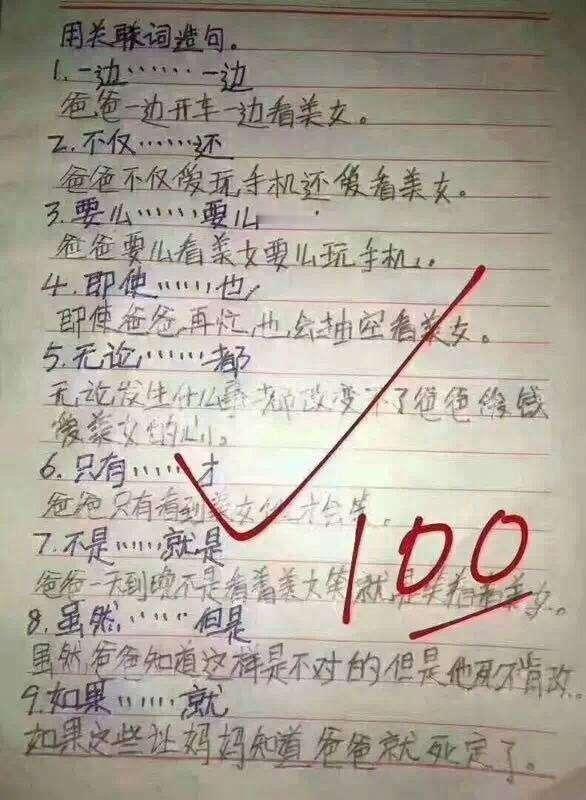 用关联词造句。
1.一边……一边
爸爸一边开车一边看美女。
2.不仅……还
爸爸不仅爱玩手机还爱看美女。
3.要么……要么
爸爸要么看美女要么玩手机。
4.即使……也
即使爸爸再忙,也会抽空看美女。
5.无论……都
无论发生什么事都改变不了爸爸
爱美女的心。
6.只有……才
爸爸只有看到美女他才会笑。
7.不是……就是
爸爸一天到晚不是看着美女笑就是笑着看美女。
8.虽然……但是
虽然爸爸知道这样是不对的但是他死不肯改。
9.如果……就
如果这些让妈妈知道爸爸就死定了。
100